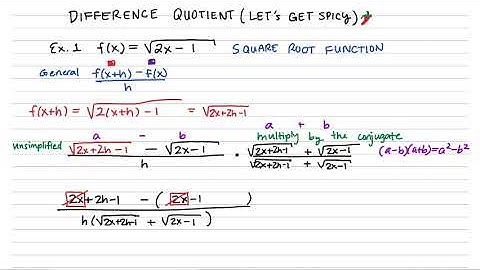 DIFFERENCE QUOTIENT (LET'S GET SPICY)
Ex. 1 f(x) = √(2x-1) SQUARE ROOT FUNCTION
General (f(x+h) - f(x))/h
f(x+h) = √(2(x+h)-1) = √(2x+2h-1)
a - b a + b
multiply by the conjugate
unsimplified (√(2x+2h-1) - √(2x-1))/h · (√(2x+2h-1) + √(2x-1))/(√(2x+2h-1) + √(2x-1)) (a-b)(a+b)=a²-b²
(2x+2h-1 - (2x-1))/(h(√(2x+2h-1) + √(2x-1)))